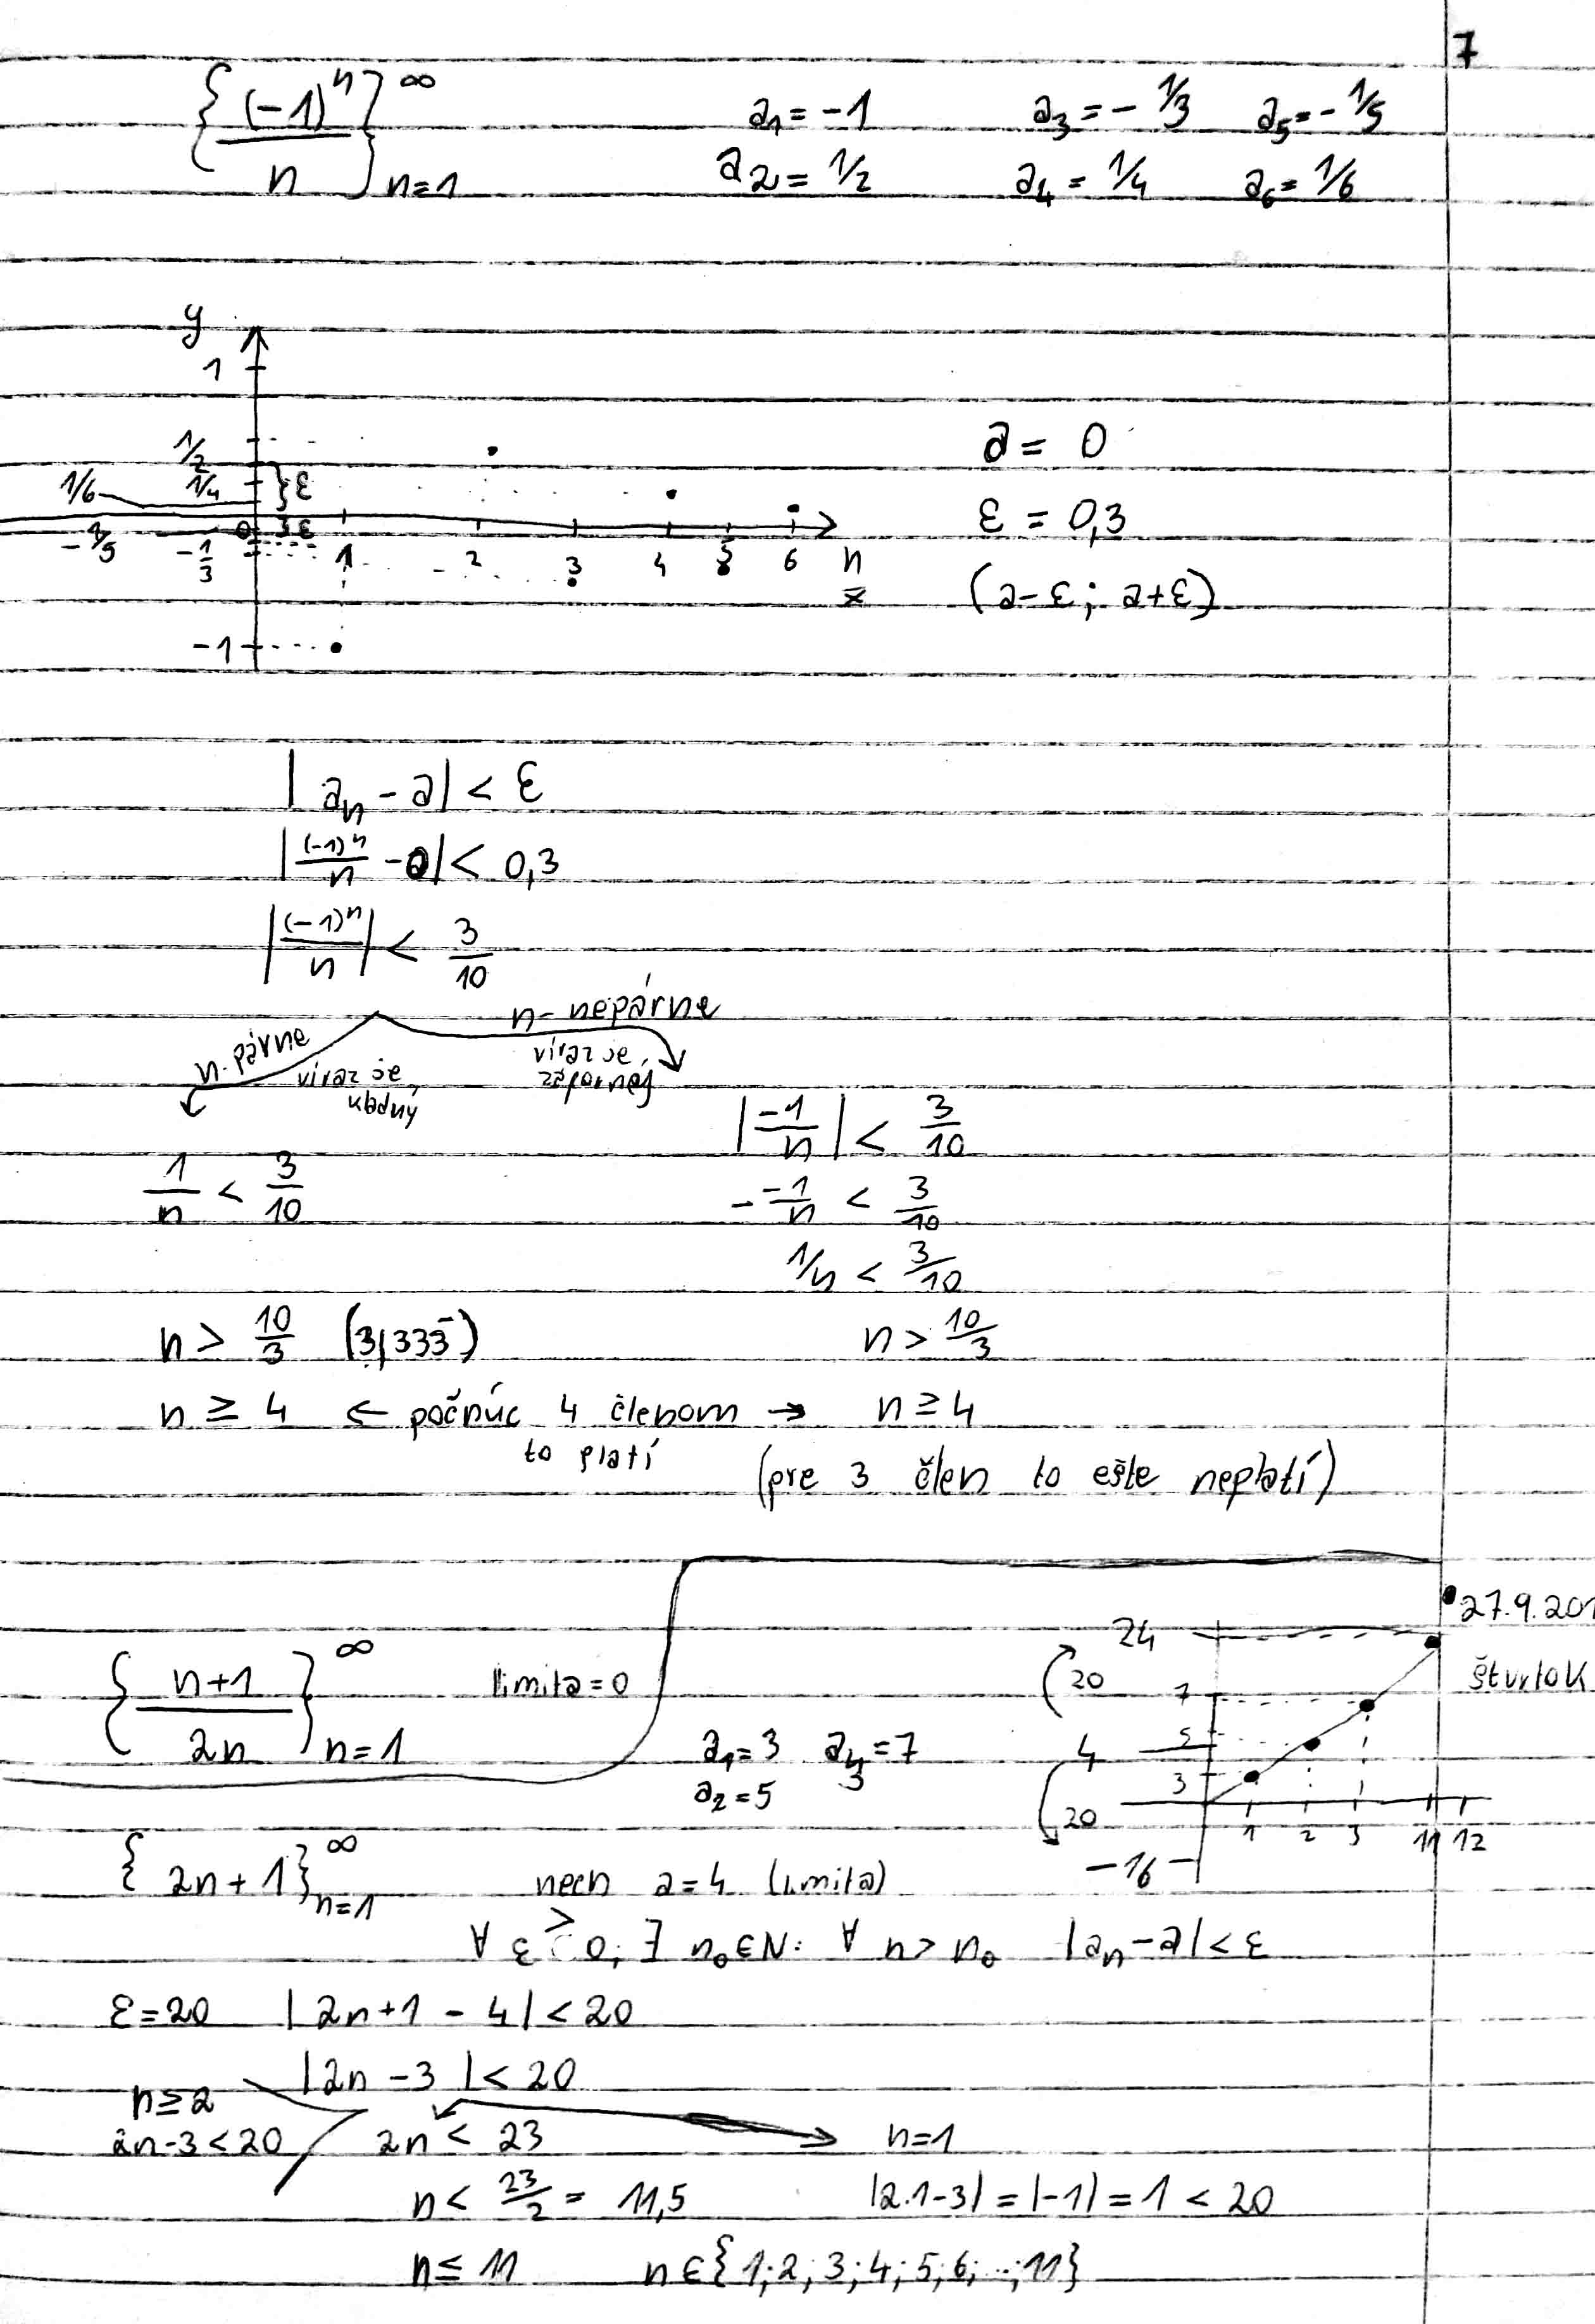 7
{(-1)ⁿ/n}∞ n=1    a₁ = -1    a₃ = - 1/3    a₅ = - 1/5
a₂ = 1/2    a₄ = 1/4    a₆ = 1/6
y
1
1/2
1/6    1/4    } ε
-1/5    -1/3    0    } ε
1    2    3    4    5    6    n
x
-1
a = 0
ε = 0,3
(a-ε; a+ε)
|aₙ - a| < ε
|(-1)ⁿ/n - 0| < 0,3
|(-1)ⁿ/n| < 3/10
n - nepárne
n - párne    víraz je    víraz je
kladný    záporný
|-1/n| < 3/10
1/n < 3/10    - -1/n < 3/10
1/n < 3/10
n > 10/3 (3,333̅)    n > 10/3
n ≥ 4 ← počnúc 4 členom → n ≥ 4
to platí
(pre 3 člen to ešte neplatí)
27.9.201
štvrtok
{n+1/2n}∞ n=1    limita = 0
a₁ = 3    a₃ = 7
a₂ = 5
24
20    7
4    5
3
20    1    2    3    11    12
-16
{2n+1}∞ n=1    nech a = 4 (limita)
∀ ε > 0; ∃ n₀ ∈ N: ∀ n > n₀ |aₙ - a| < ε
ε = 20    |2n+1 - 4| < 20
|2n - 3| < 20
n ≥ 2
2n-3 < 20    2n < 23    n=1
n < 23/2 = 11,5    |2.1-3| = |-1| = 1 < 20
n ≤ 11    n ∈ {1; 2; 3; 4; 5; 6; ..; 11}